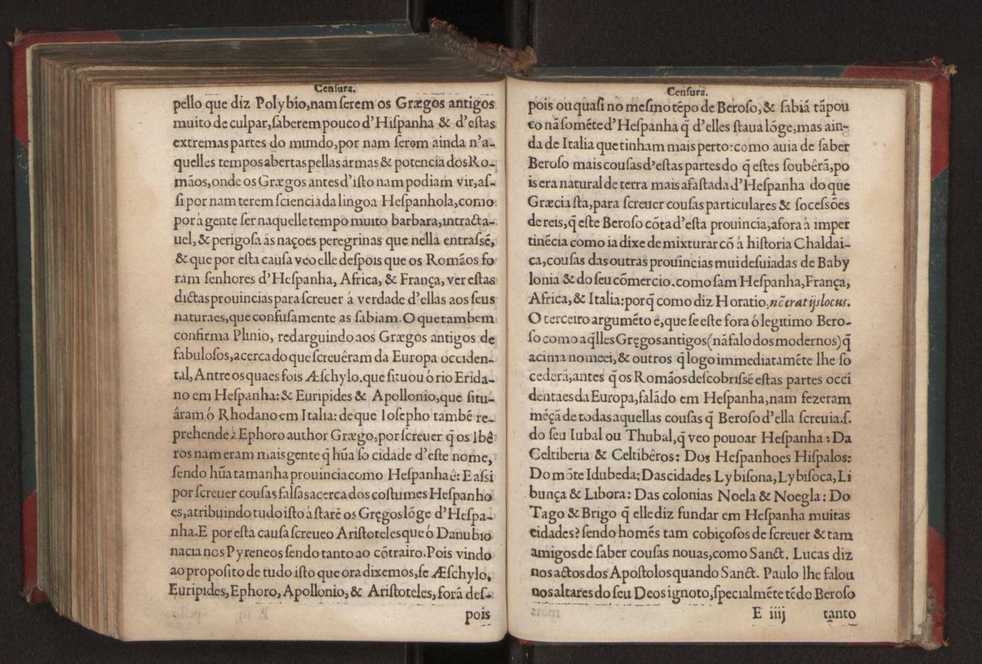 Censura.
pello que diz Polybio,nam serem os Grægos antigos
muito de culpar,saberem pouco d'Hispanha & d'estas
extremas partes do mundo,por nam serem ainda n'a-
quelles tempos abertas pellas armas & potencia dos Ro-
mãos,onde os Grægos antes d'isto nam podiam vir,as-
si por nam terem sciencia da lingoa Hespanhola,como
por à gente ser naquelle tempo muito barbara,intracta-
uel,& perigosa às naçoes peregrinas que nella entrassẽ,
& que por esta causa veo elle despois que os Romãos fo
ram senhores d'Hespanha, Africa, & França, ver estas
dictas prouincias para screuer à verdade d'ellas aos seus
naturaes,que confusamente as sabiam. O que tambem
confirma Plinio, redarguindo aos Grægos antigos de
fabulosos,acerca do que screuêram da Europa occiden-
tal, Antre os quaes fois Æschylo.que situou ó rio Erida-
no em Hespanha:& Euripides & Apollonio,que situ-
âram ó Rhodano em Italia: de que Iosepho també re-
prehende à Ephoro author Grægo,por screuer q̃ os Ibê
ros nam eram mais gente q̃ hũa so cidade d'este nome,
sendo hũa tamanha prouincia como Hespanha ê: E assi
por screuer cousas falsas acerca dos costumes Hespanho
es,atribuindo tudo isto à starẽ os Gręgos lõge d'Hespa-
nha.E por esta causa screueo Aristoteles que ó Danubio
nacia nos Pyreneos sendo tanto ao cõtrairo. Pois vindo
ao proposito de tudo isto que ora dixemos,se Æschylo,
Euripides, Ephoro, Apollonio, & Aristoteles, fora des-
pois
Censura.
pois ou quasi no mesmo tẽpo de Beroso,& sabiã tãpou
co nã somẽte d'Hespanha q̃ d'elles staua lõge,mas ain-
da de Italia que tinham mais perto: como auia de saber
Beroso mais cousas d'estas partes do q̃ estes soubêrã,po
is era natural de terra mais afastada d'Hespanha do que
Græcia sta,para screuer cousas particulares & socessões
de reis,q̃ este Beroso cõta d'esta prouincia,afora à imper
tinẽcia como ia dixe de mixturar cõ à historia Chaldai-
ca,cousas das outras prouincias mui desuiadas de Baby
lonia & do seu cõmercio.como sam Hespanha,França,
Africa,& Italia:porq̃ como diz Horatio,nõ erat ijs locus.
O terceiro argumẽto ê,que se este fora ó legitimo Bero-
so como aq̃lles Gręgos antigos(nã falo dos modernos)q̃
acima nomeei,& outros q̃ logo immediatamẽte lhe so
cederã,antes q̃ os Romãos descobrissẽ estas partes occi
dentaes da Europa, falãdo em Hespanha,nam fezeram
mẽçã de todas aquellas cousas q̃ Beroso d'ella screuia.s.
do seu Iubal ou Thubal,q̃ veo pouoar Hespanha: Da
Celtiberia & Celtibêros: Dos Hespanhoes Hispalos:
Do mõte Idubeda: Das cidades Lybisona, Lybisoca, Li
bunça & Libora: Das colonias Noela & Noegla: Do
Tago & Brigo q̃ elle diz fundar em Hespanha muitas
cidades? sendo homẽs tam cobiçosos de screuer & tam
amigos de saber cousas nouas, como Sanct. Lucas diz
nos actos dos Apostolos quando Sanct. Paulo lhe falou
nos altares do seu Deos ignoto, specialmẽte tẽdo Beroso
E iiij tanto